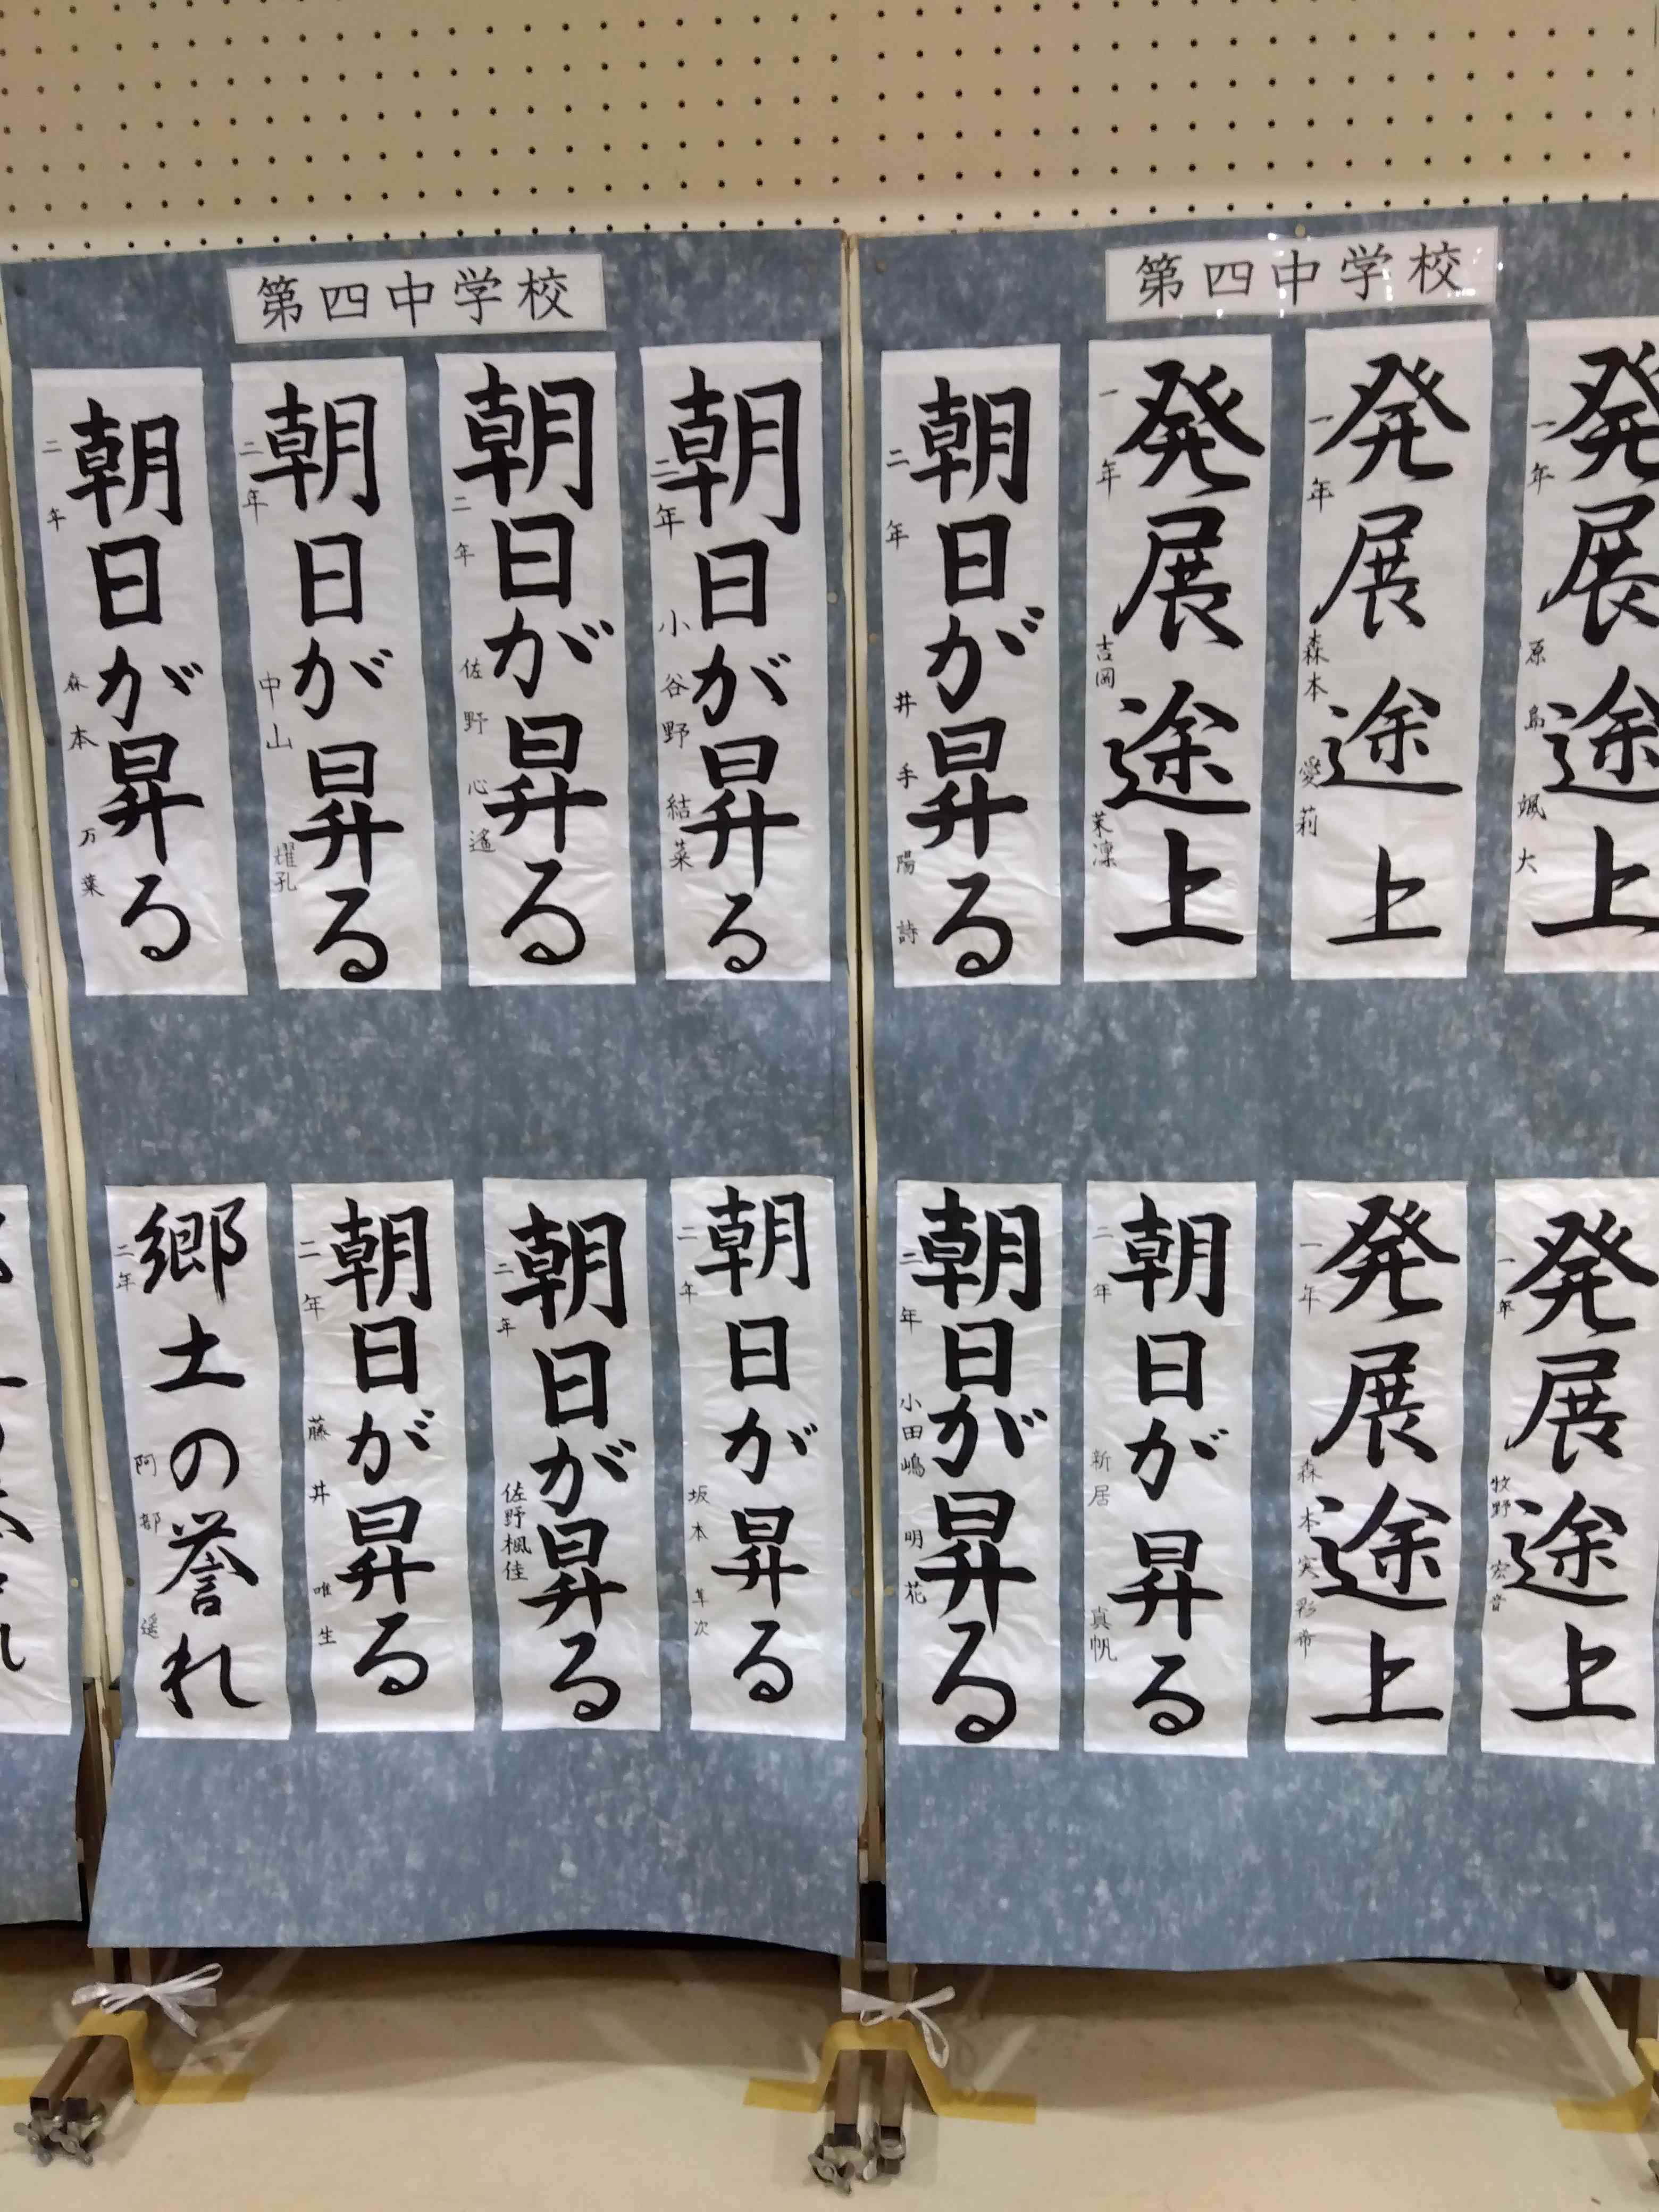 第四中学校
発展途上
一年 原島 颯大
発展途上
一年 森本 愛莉
発展途上
一年 吉岡 茉凜
朝日が昇る
二年 井手 陽詩
発展途上
一年 牧野 宏音
発展途上
一年 森本 実彩希
朝日が昇る
二年 新居 真帆
朝日が昇る
二年 小田嶋 明花
第四中学校
朝日が昇る
二年 小谷野 結菜
朝日が昇る
二年 佐野 心遙
朝日が昇る
二年 中山 耀孔
朝日が昇る
二年 森本 万葉
朝日が昇る
二年 坂本
朝日が昇る
二年 佐野楓佳
朝日が昇る
二年 藤井 唯生
郷土の誉れ
二年 阿部 遥